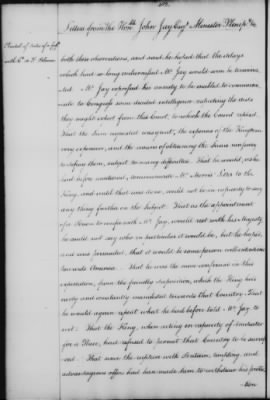 Letters from The Hon.ble John Jay Esq.r Minister Plenip.o &c
both these observations, and said he hoped that the delays
which had so long embarrassed Mr Jay would soon be termina
ted. Mr Jay expressed his anxiety to be enabled to communi
cate to Congress some decided intelligence respecting the aids
they might expect from this Court, to which the Count replied
That the sum requested was great, the expences of the Kingdom
very expensive, and the means of obtaining the sums necessary
to defray them, subject to many difficulties. That he would, as he
had before mentioned, communicate Mr Morris' Letter to the
King, and until that was done, could not be in capacity to say
any thing further on the Subject. That as the appointment
of a Person to confer with Mr Jay, would rest with his Majesty
he could not say who in particular it would be, but he hoped,
and was persuaded, that it would be some person well intentioned
towards America. That he was the more confirmed in this
expectation, from the friendly disposition, which the King had
early and constantly manifested towards that Country. That
he would again repeat what he had before told Mr Jay, to
wit: That the King, when acting in capacity of mediator
for a Peace, had refused to permit that Country to be sacrific
ed. That since the rupture with Britain, tempting and
advantageous offers had been made him to withdraw his protec
tion